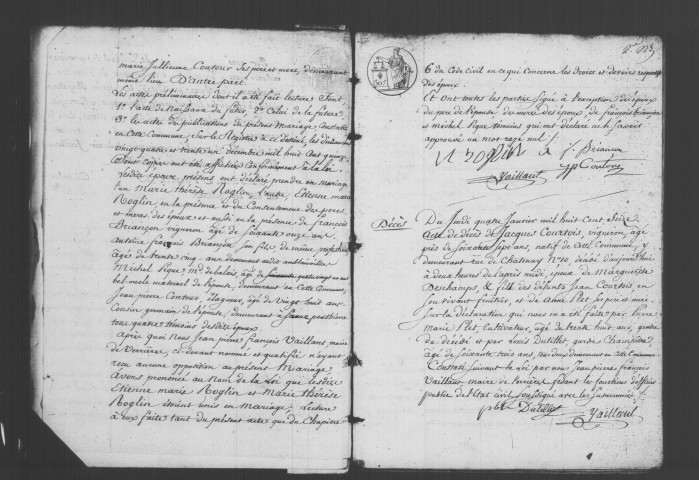 marie Jullienne Coutour ses pere et mere, demeurant
même lieu D'autre part.
Les acte préliminaire dont il a été fait lecture sont,
1° l'acte de Naissance du futur, 2° Celui de la future
3° les acte de publications du présent Mariage Constatée
en Cette Commune, Sur le Registre à ce destiné, les dimanches
vingt quatre et trente un décembre mil huit Cent quinze
dont Copie ont été affichées Conformément à la loi.
Lesdits époux présens ont déclaré prendre en mariage
l'un Marie Thérèse Roglin, l'autre, Etienne marie
Roglin, en la présence et du Consentement des peres
et meres des époux et aussi en la présence de françois
Briançon vigneron âgé de soixante onze ans
antoine françois Briançon son fils de même profession
âgé de trente cinq ans demeurant audit
Michel Pique
bel-mele maternel de l'épouse, demeurant en Cette Commune
Jean pierre Contour, élagueur, âgé de vingt huit ans
Cousin germain de l'épouse, demeurant à
tous quatre témoins desdits époux.
après quoi Nous Jean pierre françois Vaillant maire
de Verrières, ci-devant nommé et qualifié n'ayant
reçu aucune opposition au présent Mariage
avons prononcé au Nom de la loi que lesdits
Etienne marie Roglin et Marie Thérèse
Roglin étoient unis en Mariage. Lecture
a eux faite tant du présent acte que du Chapitre
6 du Code Civil en ce qui Concerne les Droits et devoirs respectifs
des époux.
Et ont toutes les partie signé à l'exception des époux
du pere de l'épouse des mere des époux, de françois Briançon
et Michel Pique témoins qui ont déclaré ne le savoir
approuvé un mot rayé nul.
a f Briancon
Vaillant jp Coutour
Décès
Du Jeudi quatre Janvier mil huit Cent Seize
Acte de décès de Jacques Courtois, vigneron, âgé
près de soixante sept ans, natif de Cette Commune, y
demeurant rue de Chatenay N° 10, décédé d'aujourd'hui
à deux heures de l'après midi, époux de Marguerite
Deschamps, & fils des défunts Jean Courtois en
son vivant fruitier, et de Anne Plet ses pere et mere
Sur la déclaration qui nous en a été faite par pierre
Marie Plet Cultivateur, âgé de trente huit ans, gendre
du décédé et par Louis Dutillet, garde Champêtre
âgé de soixante trois ans, tous deux demeurant en Cette Commune
Constaté suivant la loi par nous Jean pierre françois
Vaillant maire de Verrières, faisant les fonctions d'officier
public de l'état Civil soussigné avec les susnommés
plet Dutillet Vaillant